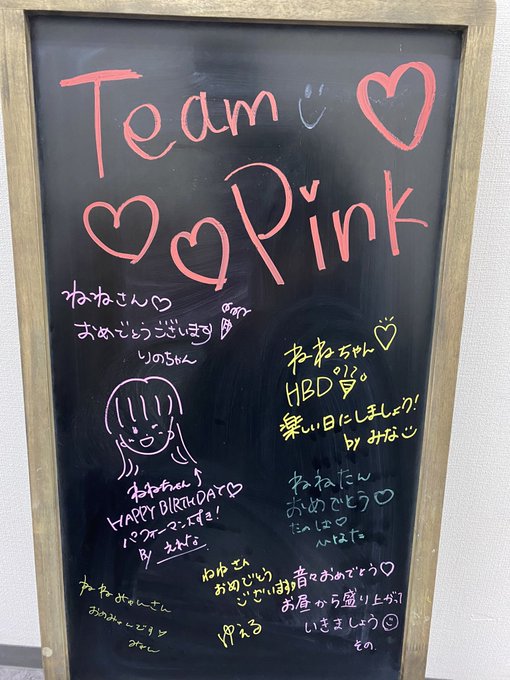 Team
Pink
ねねさん♡
おめでとうございます
りのちゃん
ねねちゃん♡
HBD
楽しい日にしましょう!
by みな
ねねちゃん
HAPPY BIRTHDAY♡
パフォーマンスすき!
By えれな
ねねたん
おめでとう♡
たのしも♡
ひなた
ねねみゃんさん
おめみゃんです
みゃん
ねねさん
おめでとう
ございます
ゆえる
音々おめでとう♡
お昼から盛り上がって
いきましょう
その